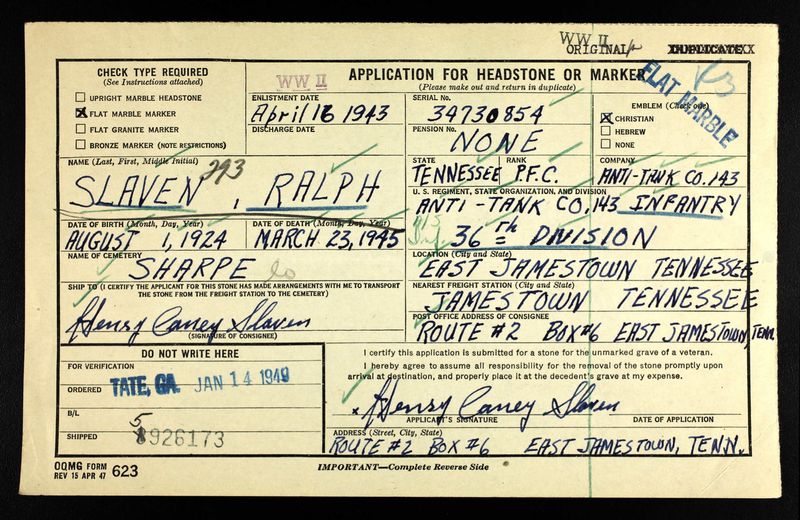 WW II
ORIGINAL
DUPLICATE
CHECK TYPE REQUIRED
(See Instructions attached)
UPRIGHT MARBLE HEADSTONE
FLAT MARBLE MARKER
FLAT GRANITE MARKER
BRONZE MARKER (NOTE RESTRICTIONS)
WW II
APPLICATION FOR HEADSTONE OR MARKER
(Please make out and return in duplicate)
FLAT MARBLE
ENLISTMENT DATE
April 16 1943
DISCHARGE DATE
SERIAL No.
34730854
PENSION No.
NONE
EMBLEM (Check one)
CHRISTIAN
HEBREW
NONE
NAME (Last, First, Middle Initial)
SLAVEN, RALPH
STATE
TENNESSEE
RANK
P.F.C.
COMPANY
ANTI-TANK CO. 143
U. S. REGIMENT, STATE ORGANIZATION, AND DIVISION
ANTI-TANK CO, 143 INFANTRY
36th DIVISION
DATE OF BIRTH (Month, Day, Year)
AUGUST 1, 1924
DATE OF DEATH (Month, Day, Year)
MARCH 23, 1945
NAME OF CEMETERY
SHARPE
LOCATION (City and State)
EAST JAMESTOWN TENNESSEE
SHIP TO (I CERTIFY THE APPLICANT FOR THIS STONE HAS MADE ARRANGEMENTS WITH ME TO TRANSPORT
THE STONE FROM THE FREIGHT STATION TO THE CEMETERY)
Henry Caney Slaven
(SIGNATURE OF CONSIGNEE)
NEAREST FREIGHT STATION (City and State)
JAMESTOWN TENNESSEE
POST OFFICE ADDRESS OF CONSIGNEE
ROUTE #2 BOX #6 EAST JAMESTOWN, TENN.
DO NOT WRITE HERE
FOR VERIFICATION
ORDERED TATE, GA. JAN 14 1949
B/L
SHIPPED
5926173
I certify this application is submitted for a stone for the unmarked grave of a veteran.
I hereby agree to assume all responsibility for the removal of the stone promptly upon
arrival at destination, and properly place it at the decedent's grave at my expense.
x Henry Caney Slaven
APPLICANT'S SIGNATURE
DATE OF APPLICATION
ADDRESS (Street, City, State)
ROUTE #2 BOX #6 EAST JAMESTOWN, TENN.
OQMG FORM
REV 15 APR 47 623
IMPORTANT—Complete Reverse Side